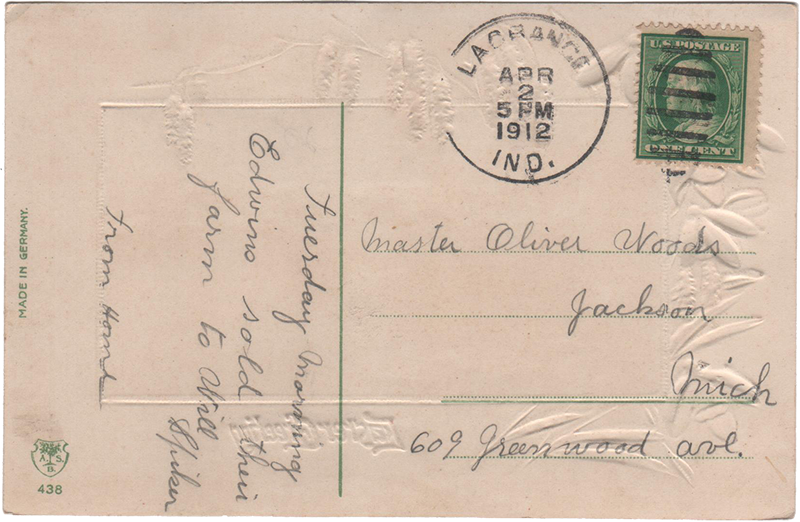 LAGRANGE
APR
2
5 PM
1912
IND.
U.S. POSTAGE
ONE CENT
Master Oliver Woods
Jackson
Mich
609 Greenwood ave.
Tuesday Morning
Edwins sold their
farm to Will
Spiker
From Home
MADE IN GERMANY.
A. S.
B.
438
Easter Greeting